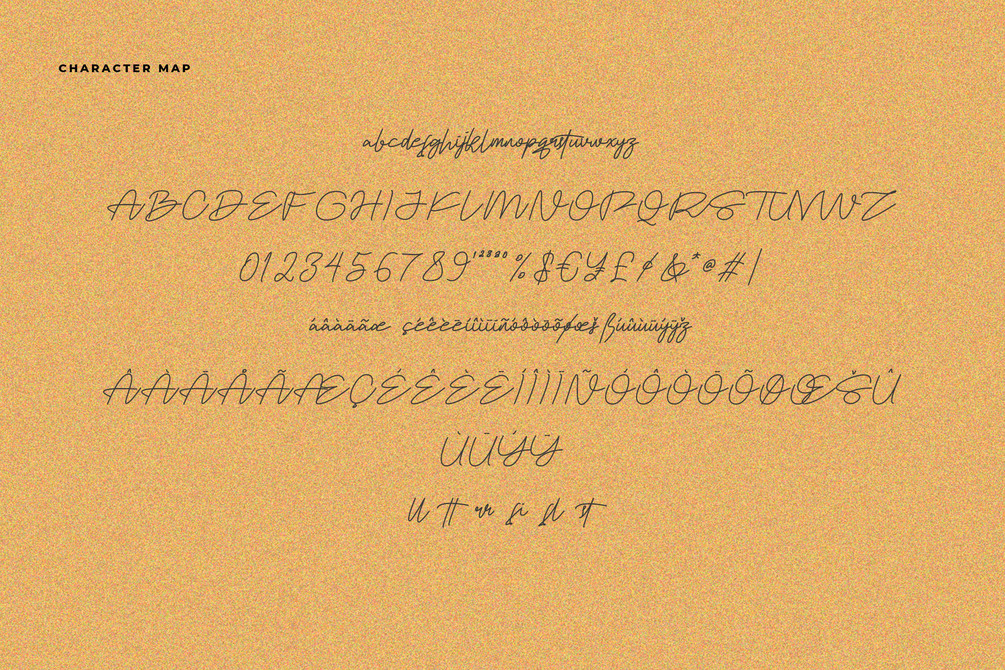 CHARACTER MAP
abcdefghijklmnopqrstuvwxyz
ABCDEFGHIJKLMNOPQRSTUVWZ
0123456789 %$€¥£¢&*@#|
áâàāãæ çéêèēíîìīñóôòōõøœš ßúûùūýȳž
ÂÀĀÅÃÆÇÉÊÈĒÍÎÌĪÑÓÔÒŌÕØŒŠÛ
ÙŪÝȲ
ll tt rr fi fl st